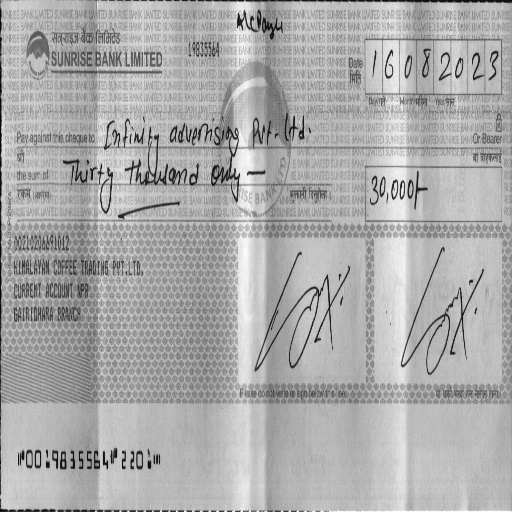 A/C Payee
सनराइज बैंक लिमिटेड
SUNRISE BANK LIMITED
19835564
Date
मिति
16082023
Pay against this cheque to Infinity advertising Pvt. Ltd.
Or Bearer
श्री
the sum of Thirty thousand only —
रकम
30,000/-
00210206691012
HIMALAYAN COFFEE TRADING PVT.LTD.
CURRENT ACCOUNT NPR
GAIRIDHARA BRANCH
Please do not write or sign below this line.
⑈00⑆9835564⑈220⑆⑈